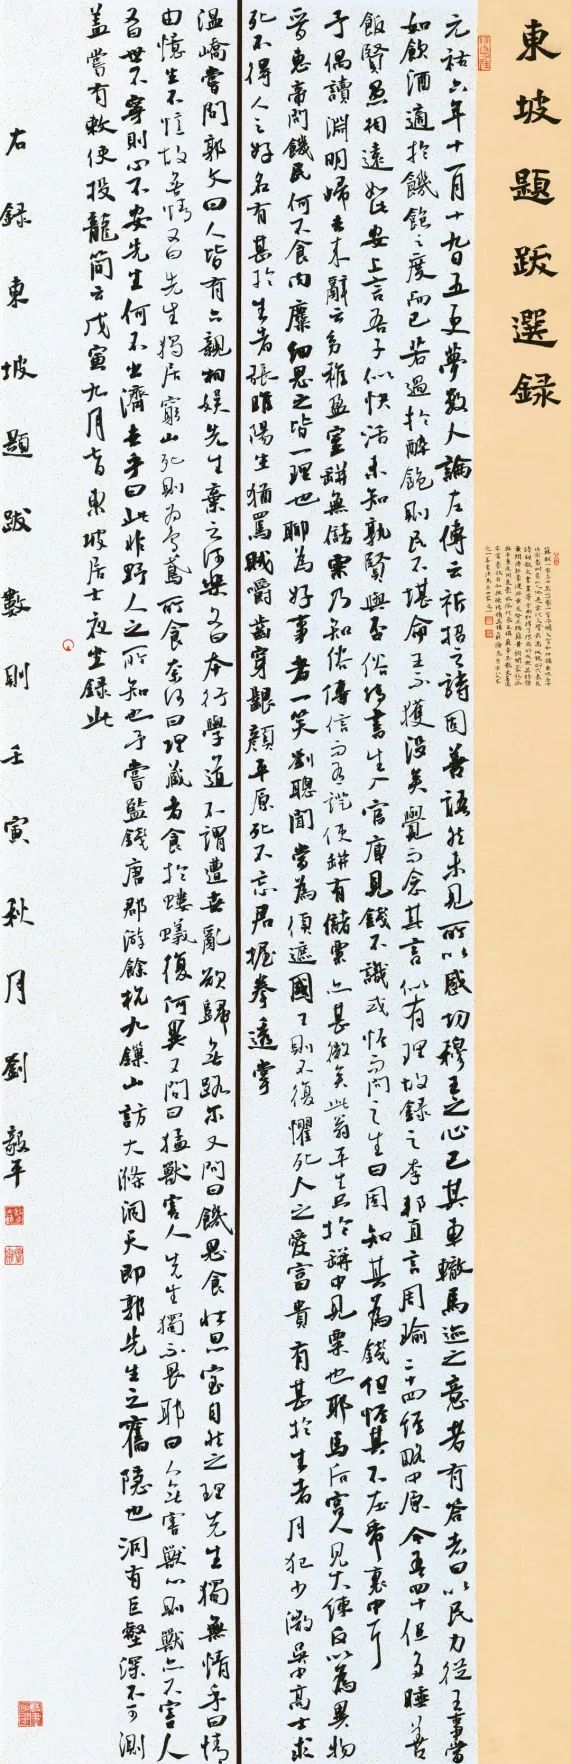 東坡題跋選録
元祐六年十一月十九日五更夢數人論左傳云祈招之詩固善語然未見所以感切穆王之心已其車轍馬迹之意者有答者曰以民力從王事當
如飲酒適於饑飽之度而已若過於醉飽則民不堪命王不獲没矣覺而念其言似有理故録之李邦直言周瑜二十四經略中原今吾四十但多睡善
飯賢愚相遠如此安上言吾子似快活未知孰賢與否俗傳書生入官庫見錢不識或怪而問之生曰固知其為錢但怪其不在帋裏中耳
予偶讀淵明歸去來辭云幼稚盈室缾無儲粟乃知俗傳信而有證使缾有儲粟亦甚微矣此翁平生只於缾中見粟也耶馬后宮人見大練反以為異物
晉惠帝問饑民何不食肉糜細思之皆一理也聊為好事者一笑劉聰聞當為須遮國王則不復懼死人之愛富貴有甚於生者月犯少微吳中高士求
死不得人之好名有甚於生者張睢陽生猶罵賊嚼齒穿齦顏平原死不忘君握拳透掌
溫嶠嘗問郭文曰人皆有六親相娛先生棄之何樂文曰本行學道不謂遭世亂欲歸無路尔又問曰饑思食壯思室自然之理先生獨無情乎曰情
由憶生不憶故無情又曰先生獨居窮山死則為烏鳶所食奈何曰埋藏者食於螻蟻復何異又問曰猛獸害人先生獨不畏耶曰人無害獸心則獸亦不害人
又曰世不寧則心不安先生何不出濟世乎曰此非野人之所知也予嘗監錢唐郡游餘杭九鎖山訪大滌洞天即郭先生之舊隱也洞有巨壑深不可測
蓋嘗有敕使投龍簡云戊寅九月七日東坡居士夜坐録此
右録東坡題跋數則壬寅秋月劉毅平